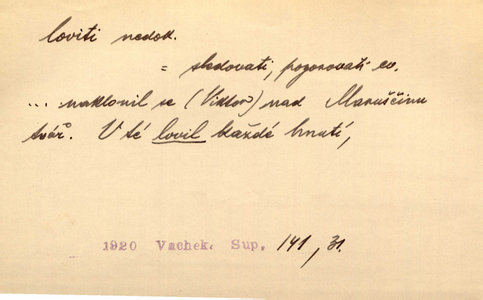 loviti nedok.
= sledovati, pozorovati co.
... naklonil se (Viktor) nad Maruščinu
tvář. V té lovil každé hnutí,
1920 Vachek. Sup. 141, 31.